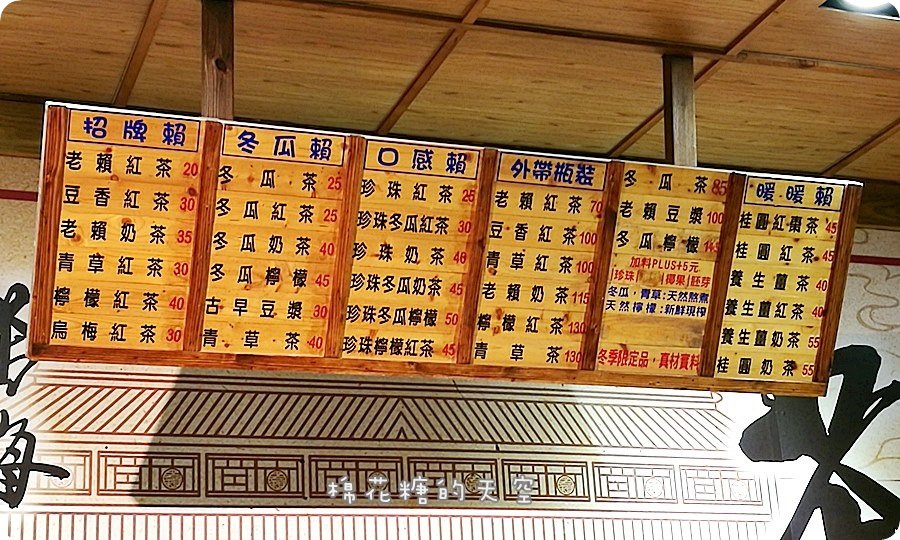 招牌賴
老賴紅茶 20
豆香紅茶 30
老賴奶茶 35
青草紅茶 30
檸檬紅茶 40
烏梅紅茶 30
冬瓜賴
冬瓜茶 25
冬瓜紅茶 25
冬瓜奶茶 40
冬瓜檸檬 45
古早豆漿 30
青草茶 40
口感賴
珍珠紅茶 25
珍珠冬瓜紅茶 30
珍珠奶茶 40
珍珠冬瓜奶茶 45
珍珠冬瓜檸檬 50
珍珠檸檬紅茶 45
外帶瓶裝
老賴紅茶 70
豆香紅茶 100
青草紅茶 100
老賴奶茶 115
檸檬紅茶 130
青草茶 130
冬瓜茶 85
老賴豆漿 100
冬瓜檸檬 145
加料PLUS+5元
|珍珠| |椰果|胚芽
冬瓜,青草:天然熬煮
天然檸檬:新鮮現榨
冬季限定品,真材實料
暖暖賴
桂圓紅棗茶 45
桂圓紅茶 45
養生薑茶 40
養生薑紅茶 40
養生薑奶茶 55
桂圓奶茶 55
棉花糖的天空